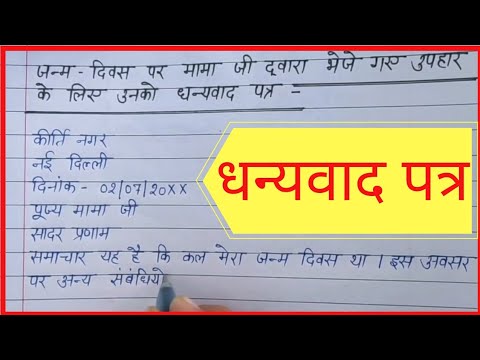 जन्म - दिवस पर मामा जी द्वारा भेजे गए उपहार
के लिए उनको धन्यवाद पत्र -
कीर्ति नगर
नई दिल्ली
दिनांक - 02/07/20XX
पूज्य मामा जी
सादर प्रणाम
समाचार यह है कि कल मेरा जन्म दिवस था । इस अवसर
पर अन्य संबंधियो
धन्यवाद पत्र